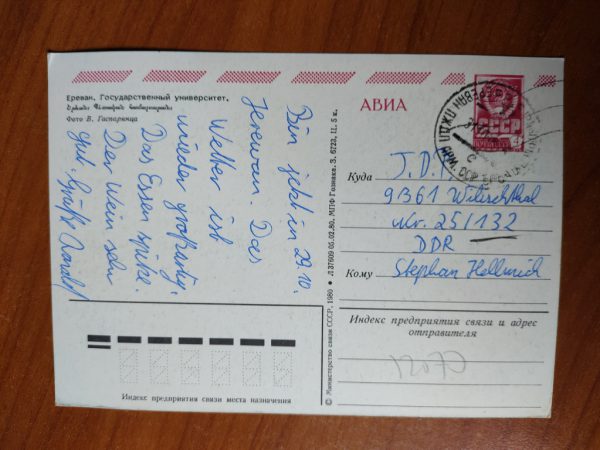 Ереван. Государственный университет.
Фото В. Гаспарянца
29.10.
Bin jetzt in
Jerewan Das
Wetter ist
wieder großartig.
Das Essen spitze.
Der Wein sehr
gut. Grüße Harald
© Министерство связи СССР, 1980 • Л 37609 05.02.80. МПФ Гознака. З. 6723, Ц. 5 к.
АВИА
СССР
ЕРЕВАН
Куда J. D.
9361 Wilischthal
Nr. 251/132
DDR
Кому Stephan Hellmich
Индекс предприятия связи и адрес
отправителя
Индекс предприятия связи места назначения